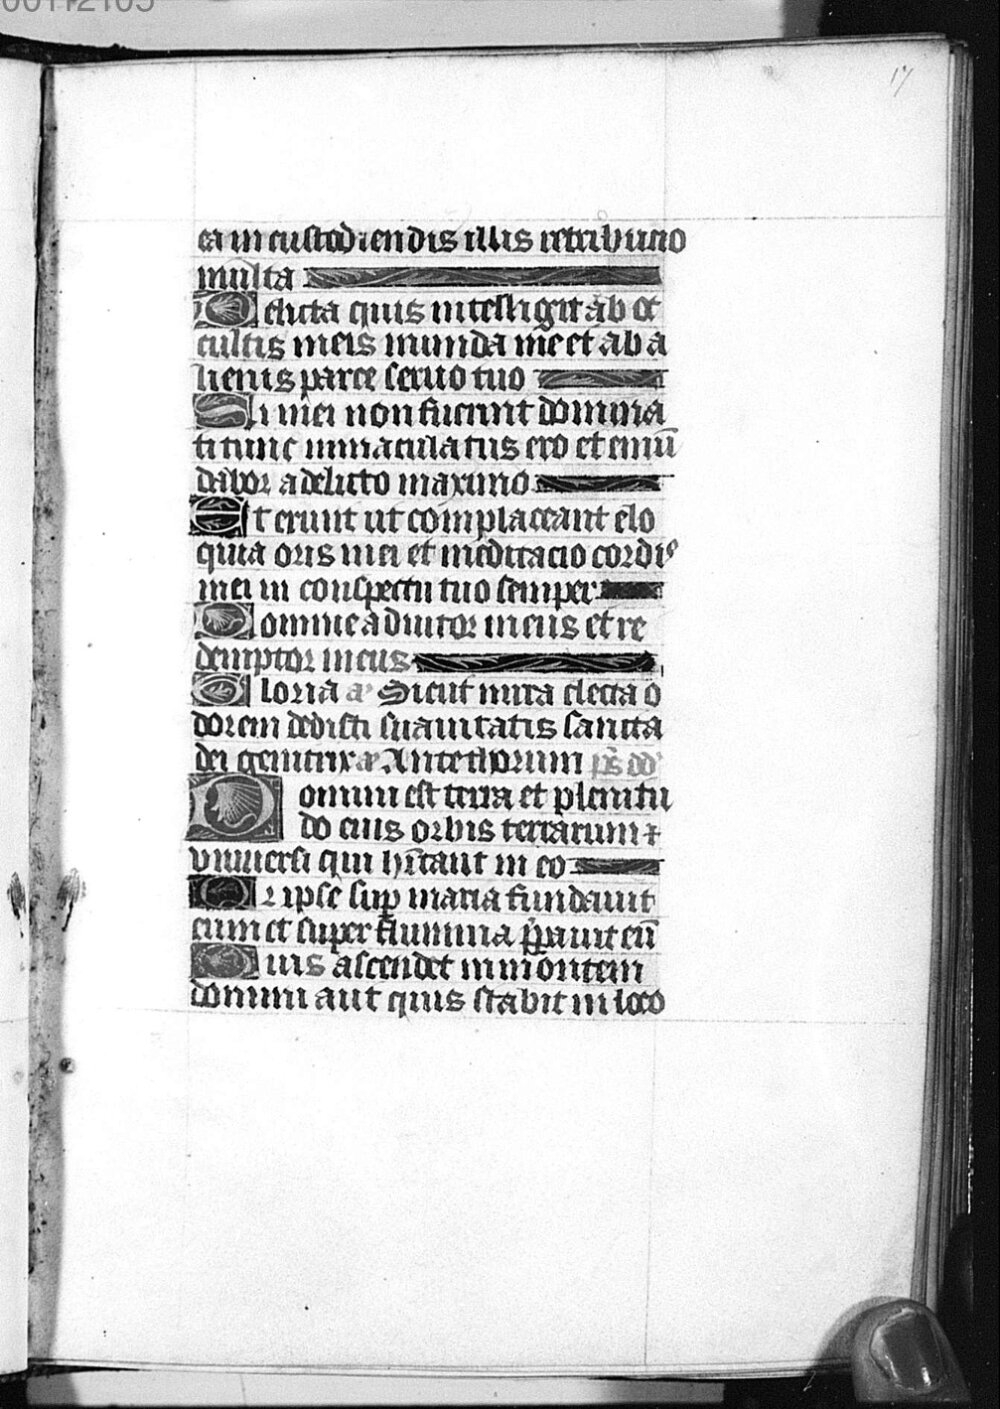 17
ea in custodiendis illis retribucio
multa
Delicta quis intelligit ab oc
cultis meis munda me et ab a
lienis parce servo tuo
Si mei non fuerint domina
ti tunc inmaculatus ero et emū
dabor a delicto maximo
Et erunt ut complaceant elo
quia oris mei et meditacio cordiꝰ
mei in conspectu tuo semper
Domine adiutor meus et re
demptor meus
Gloria aꝰ Sicut mirra electa o
dorem dedisti suavitatis sancta
dei genitrix aꝰ Ante thorum ps̄ dd̄
Domini est terra et plenitu
do eius orbis terrarum ⁊
universi qui hītant in eo
Qr ipse suꝑ maria fundavit
eum et super flumina p̄pavit eū
Quis ascendet in montem
domini aut quis stabit in loco